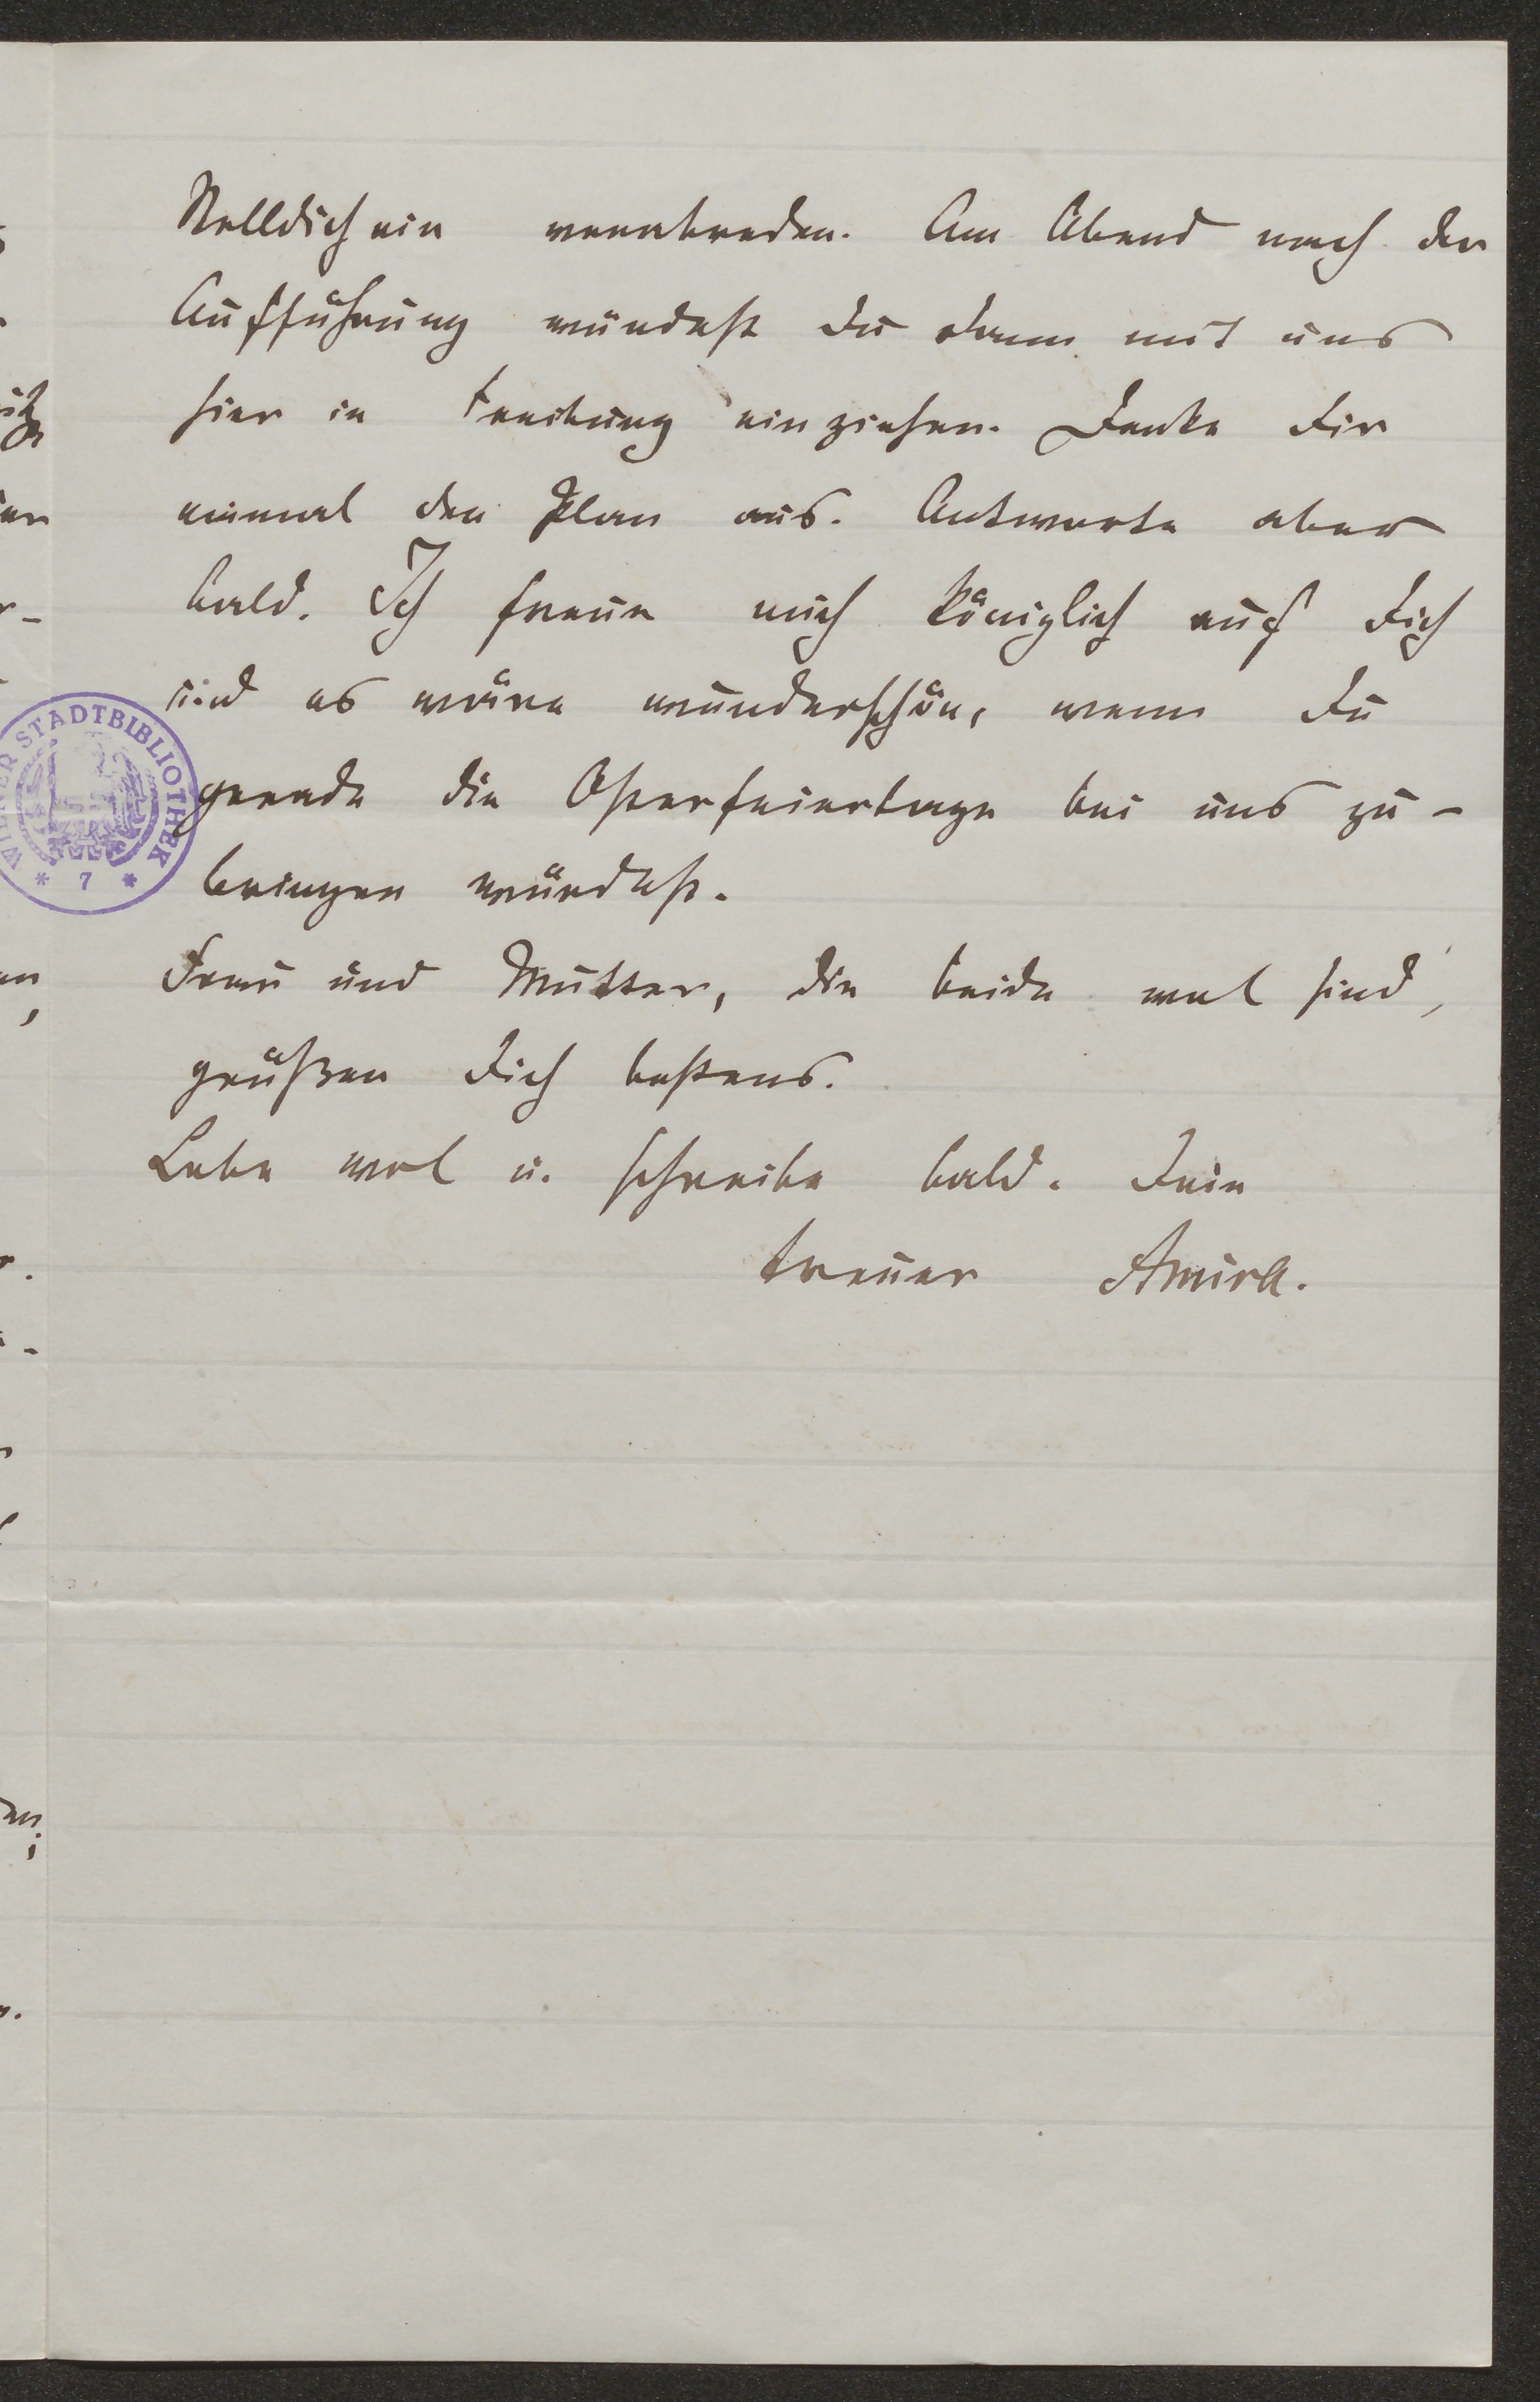 Stelldichein verabreden. Am Abend nach der
Aufführung würdest Du dann mit uns
hier in Freiburg einziehen. Denke Dir
einmal den Plan aus. Antworte aber
bald. Ich freue mich königlich auf Dich
und es wäre wunderschön, wenn Du
gerade die Osterfeiertage bei uns zu-
bringen würdest.
Frau und Mutter, die beide wol sind,
grüßen Dich bestens.
Lebe wol u. schreibe bald. Dein
treuer Amira.
WIENER STADTBIBLIOTHEK
* 7 *